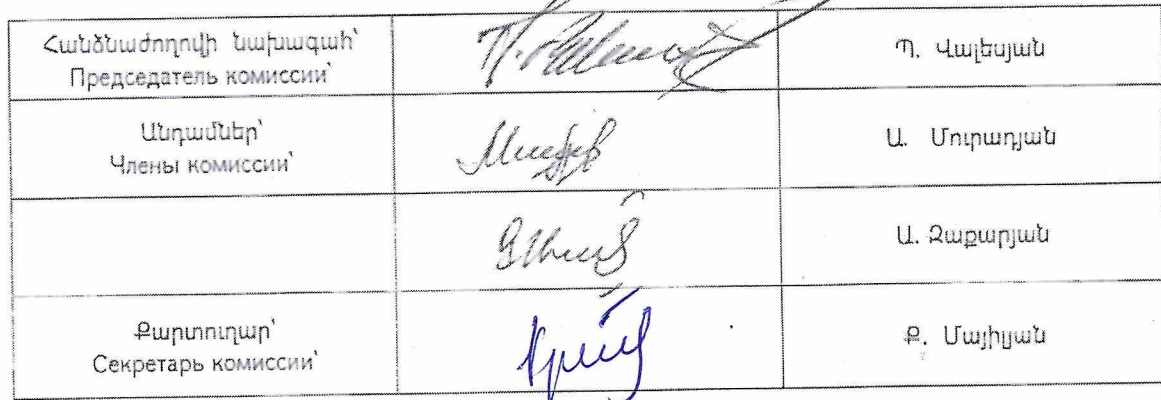 Հանձնաժողովի նախագահ՝
Председатель комиссии՝
Պ. Վալեսյան
Անդամներ՝
Члены комиссии՝
Ա. Մուրադյան
Ա. Զաքարյան
Քարտուղար՝
Секретарь комиссии՝
Ք. Մայիլյան